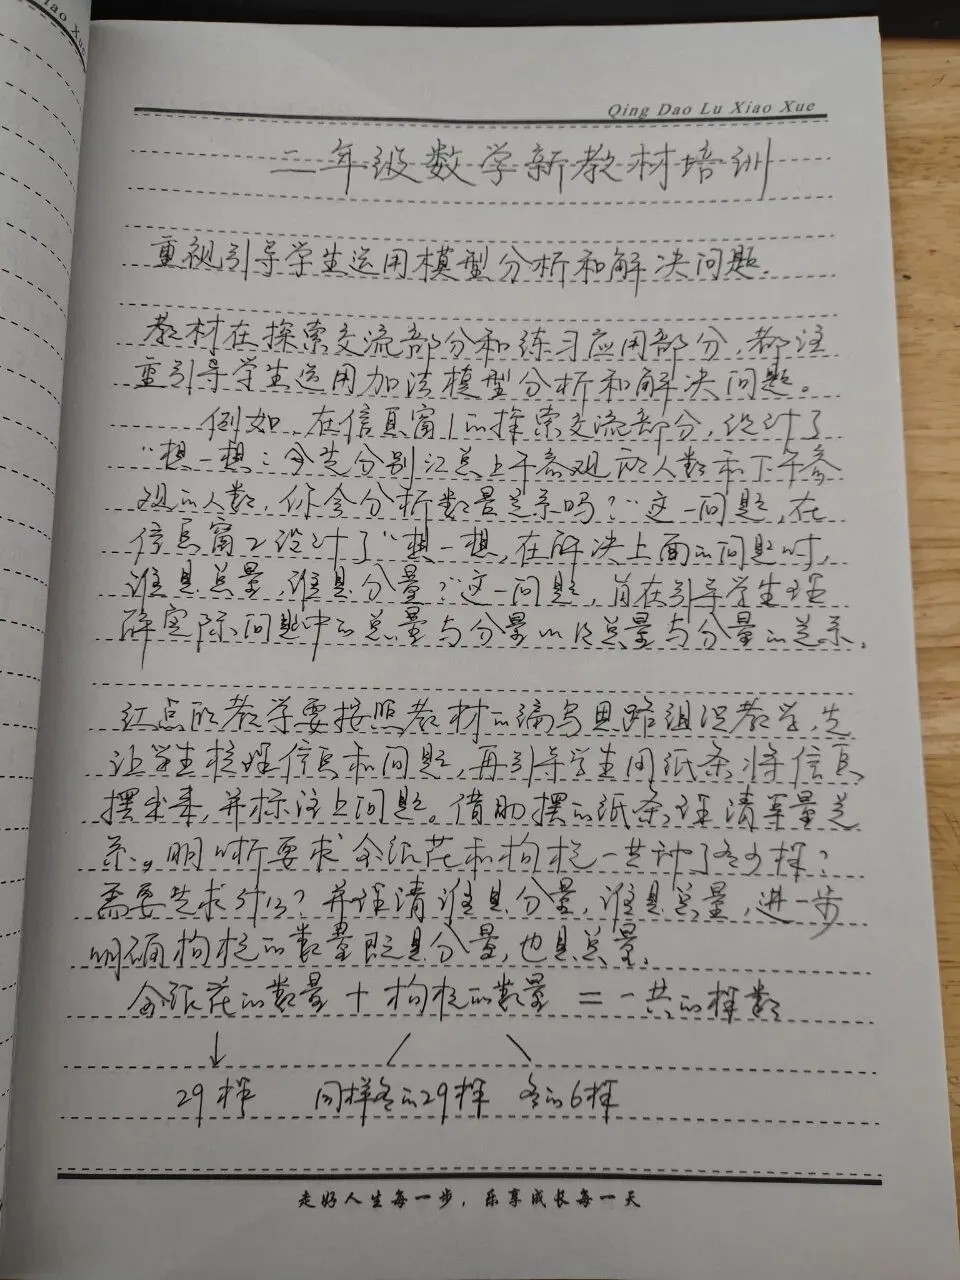 iao Xue
Qing Dao Lu Xiao Xue
二年级数学新教材培训
重视引导学生运用模型分析和解决问题.
教材在探索交流部分和练习应用部分,都注
重引导学生运用加法模型分析和解决问题。
例如,在信息窗1的探索交流部分,设计了
“想一想:今天分别汇总上午参观的人数和下午参
观的人数,你会分析数量关系吗?”这一问题,在
信息窗2设计了“想一想,在解决上面的问题时,
谁是总量,谁是分量?”这一问题,旨在引导学生理
解实际问题中的总量与分量以及总量与分量的关系.
红点的教学要按照教材的编写思路组织教学,先
让学生梳理信息和问题,再引导学生用纸条将信息
摆出来,并标注上问题。借助摆的纸条理清等量关
系,明晰要求金银花和枸杞一共种了多少棵?
需要先求什么?并理清谁是分量,谁是总量,进一步
明确枸杞的数量既是分量,也是总量.
金银花的数量 + 枸杞的数量 = 一共的棵数
29棵 同样多的29棵 多的6棵
走好人生每一步,乐享成长每一天